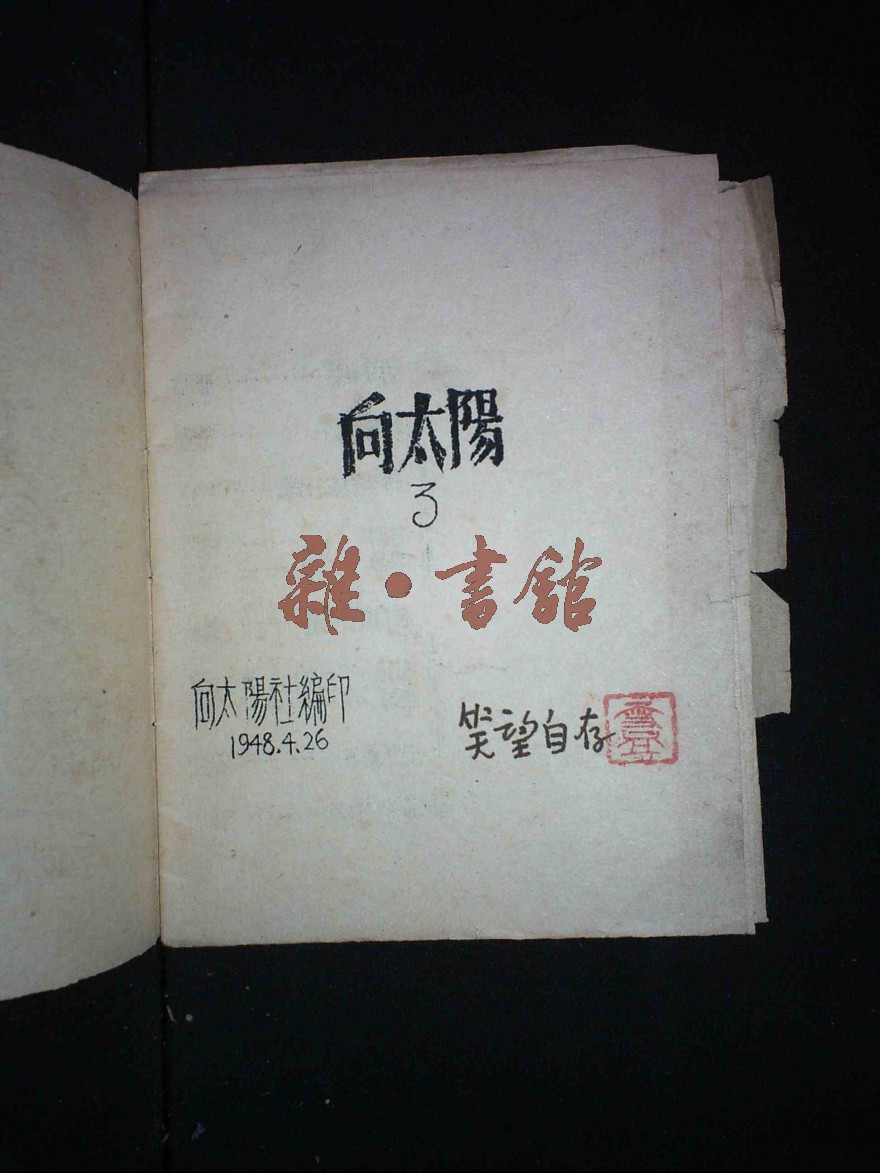 向太陽
3
雜·書館
向太陽社編印
1948.4.26
笑望自存